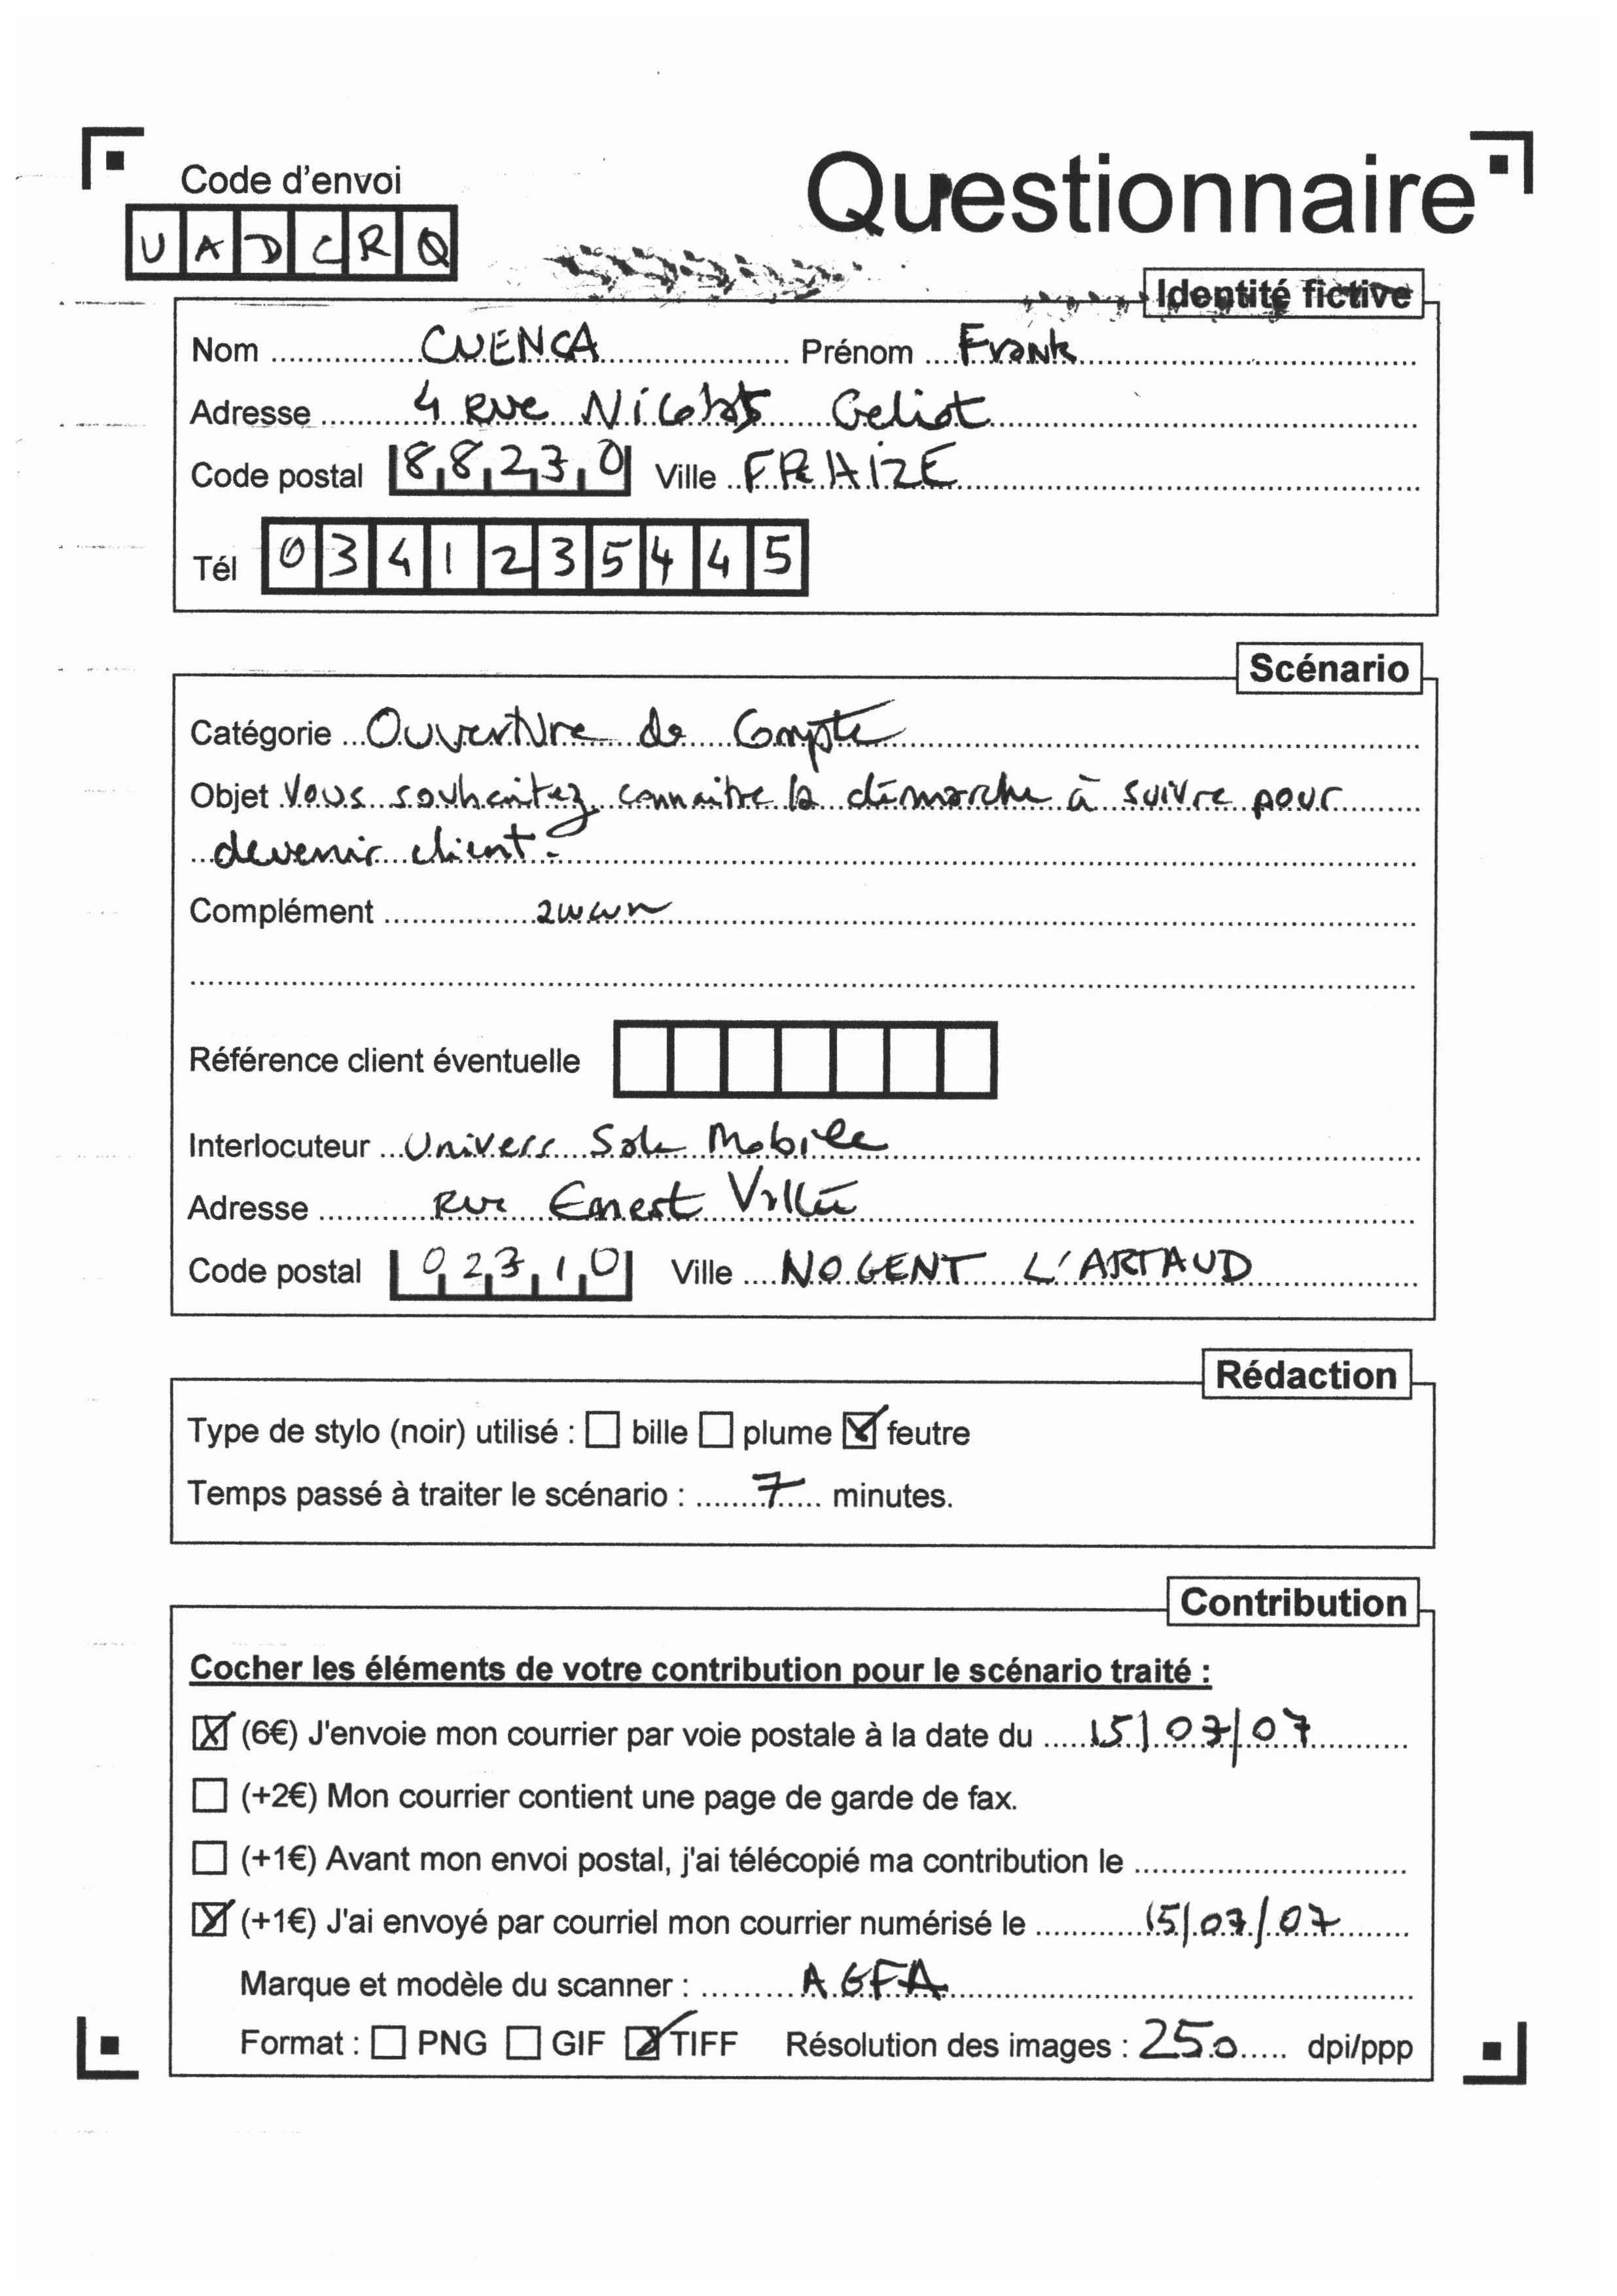 Code d'envoi
Questionnaire
U A D C R Q
Identité fictive
Nom CUENCA Prénom Frank
Adresse 4 Rue Nicolas Geliot
Code postal 88230 Ville FRAIZE
Tél 0341235445
Scénario
Catégorie Ouverture de Compte
Objet Vous souhaitez connaitre la démarche à suivre pour
devenir client.
Complément
Référence client éventuelle
Interlocuteur Univers Sole Mobile
Adresse Rue Ernest Vallée
Code postal 02310 Ville NOGENT L'ARTAUD
Rédaction
Type de stylo (noir) utilisé : bille plume feutre
Temps passé à traiter le scénario : 7 minutes.
Contribution
Cocher les éléments de votre contribution pour le scénario traité :
(6€) J'envoie mon courrier par voie postale à la date du 15/07/07
(+2€) Mon courrier contient une page de garde de fax.
(+1€) Avant mon envoi postal, j'ai télécopié ma contribution le
(+1€) J'ai envoyé par courriel mon courrier numérisé le 15/07/07
Marque et modèle du scanner : AGFA
Format : PNG GIF TIFF Résolution des images : 250 dpi/ppp